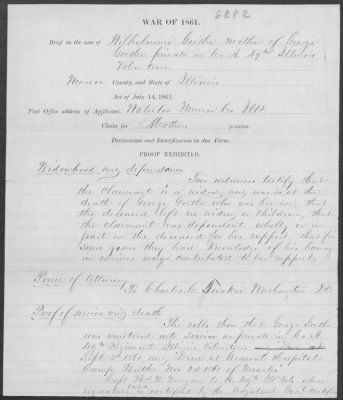 6282
WAR OF 1861.
Brief in the case of Wilhelmina Goethe mother of George
Goethe private in Co A. 49th Illinois
Volunteers
Monroe County, and State of Illinois
Act of July 14, 1862.
Post Office address of Applicant, Waterloo Monroe Co Ills
Claim for Mothers pension.
Declaration and Identification in due Form.
PROOF EXHIBITED:
Widowhood and dependence
Two witnesses testify that
the Claimant is a widow, and was so at the
death of George Goethe who was her son, that
the deceased left no widow or children, that
the claimant was dependent wholly or in
part on the deceased for her support that for
some years they had of his having
in various ways contributed to her support.
Power of Attorney
To Charles C. Tucker Washington DC
Proof of service and death
The rolls show that George Goethe
was mustered into Service a private in Co A.
49th Regiment Illinois Volunteers
Sept 1861 and Died at General Hospital
Camp
Capt Thos. W. Morgan Co. A 49th
signature is certified by the Adjutant Genl